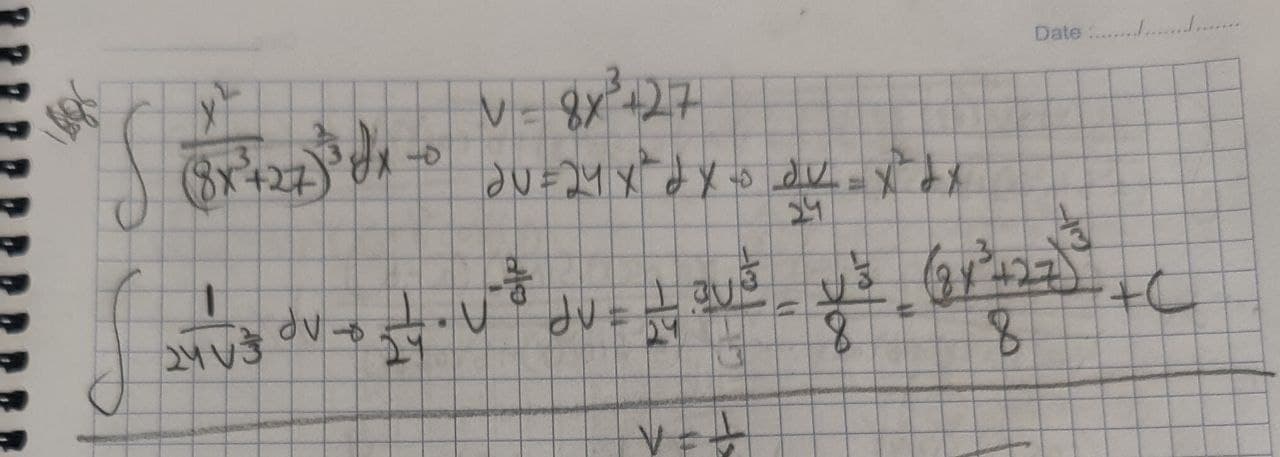 Date :....../....../......
∫ x²/(8x³+27)^(2/3) dx → v = 8x³+27
dv = 24x² dx → dv/24 = x² dx
∫ 1/(24v^(2/3)) dv → 1/24 · v^(-2/3) dv = 1/24 · 3v^(1/3) = v^(1/3)/8 = (8x³+27)^(1/3)/8 + C
v = 1